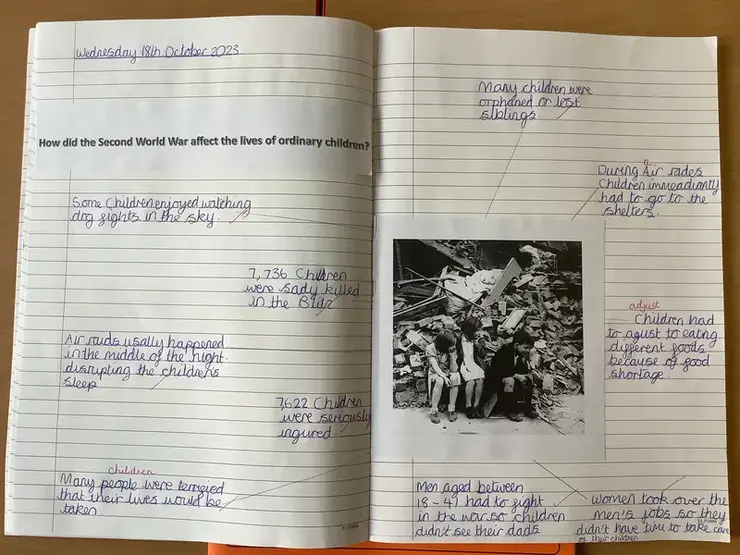 Wednesday 18th October 2023
How did the Second World War affect the lives of ordinary children?
Some Children enjoyed watching
dog fights in the sky.
7,736 Children
were sady killed
in the Blitz
Air raids usally happened
in the middle of the night.
disrupting the childrens
sleep
7,622 Children
were seriously
ingured.
children
Many people were terrified
that their lives would be
taken
Many children were
orphaned or lost
siblings.
a
During Air rades
Children immeadiantly
had to go to the
shelters.
adjust
Children had
to agust to eating
different foods
because of food
shortage.
Men aged between
18-41 had to fight
in the war so children
didn't see their dads
Women took over the
men's jobs so they
didn't have time to take care
of their children